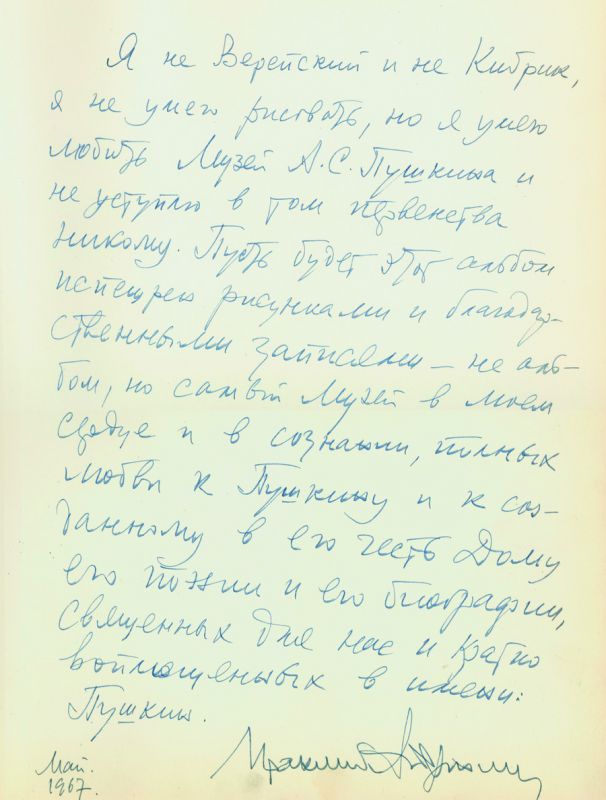 Я не Верейский и не Кибрик,
я не умею рисовать, но я умею
любить Музей А.С. Пушкина и
не уступлю в том первенства
никому. Пусть будет этот альбом
испещрен рисунками и благодар-
ственными записями — не аль-
бом, но самый Музей в моем
сердце и в сознании, полных
любви к Пушкину и к соз-
данному в его честь Дому
его поэзии и его биографии,
священных для нас и кратко
воплощенных в имени:
Пушкин.
Ираклий Андроников
Май.
1967.